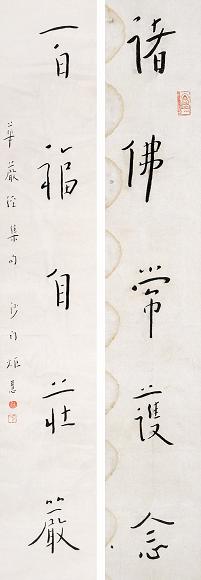 諸佛常護念
百福自莊嚴
華嚴経集句 沙門